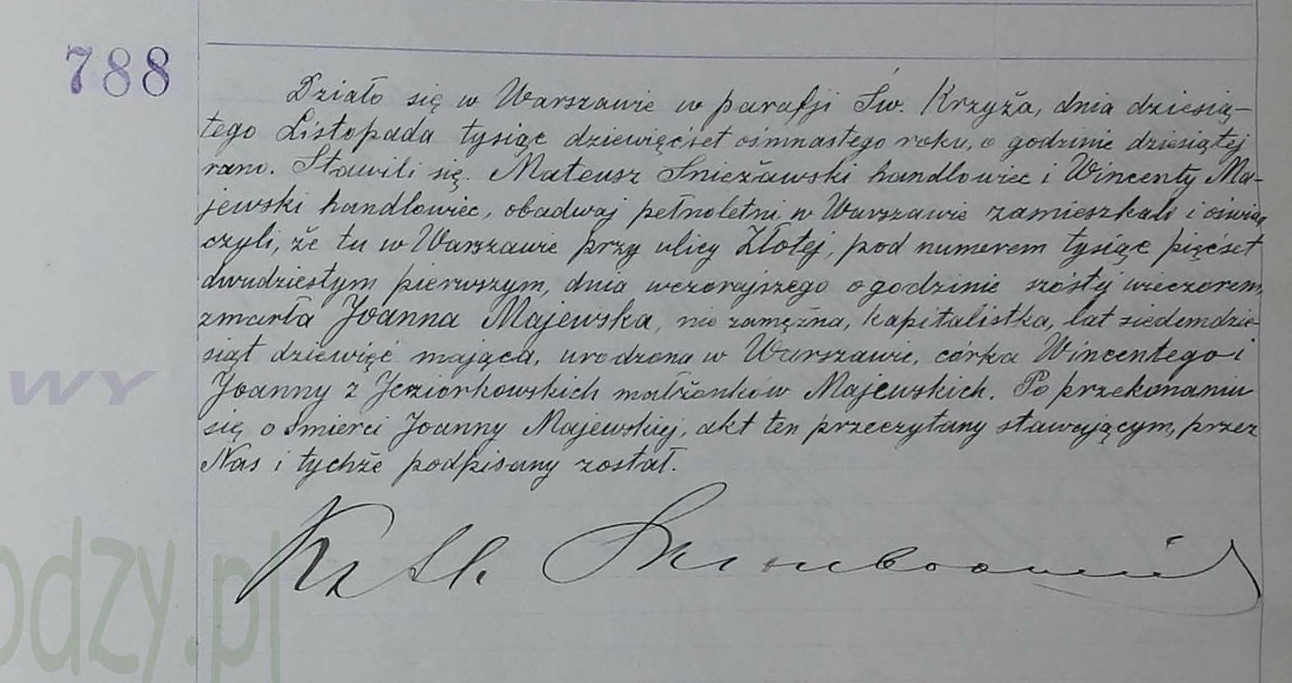 788
Działo się w Warszawie w parafji Św. Krzyża, dnia dziesią-
tego Listopada tysiąc dziewięćset ośmnastego roku, o godzinie dziesiątej
rano. Stawili się. Mateusz Śnieżawski handlowiec i Wincenty Ma-
jewski handlowiec, obadwaj pełnoletni w Warszawie zamieszkali i oświad
czyli, że tu w Warszawie przy ulicy Złotej, pod numerem tysiąc pięćset
dwudziestym pierwszym, dnia wczorajszego o godzinie szóstej wieczorem,
zmarła Joanna Majewska, nie zamężna, kapitalistka, lat siedemdzie-
siąt dziewięć mająca, urodzona w Warszawie, córka Wincentego i
Joanny z Jeziorkowskich małżonków Majewskich. Po przekonaniu
się o śmierci Joanny Majewskiej, akt ten przeczytany stawającym, przez
Nas i tychże podpisany został.
WY
odzy.pl